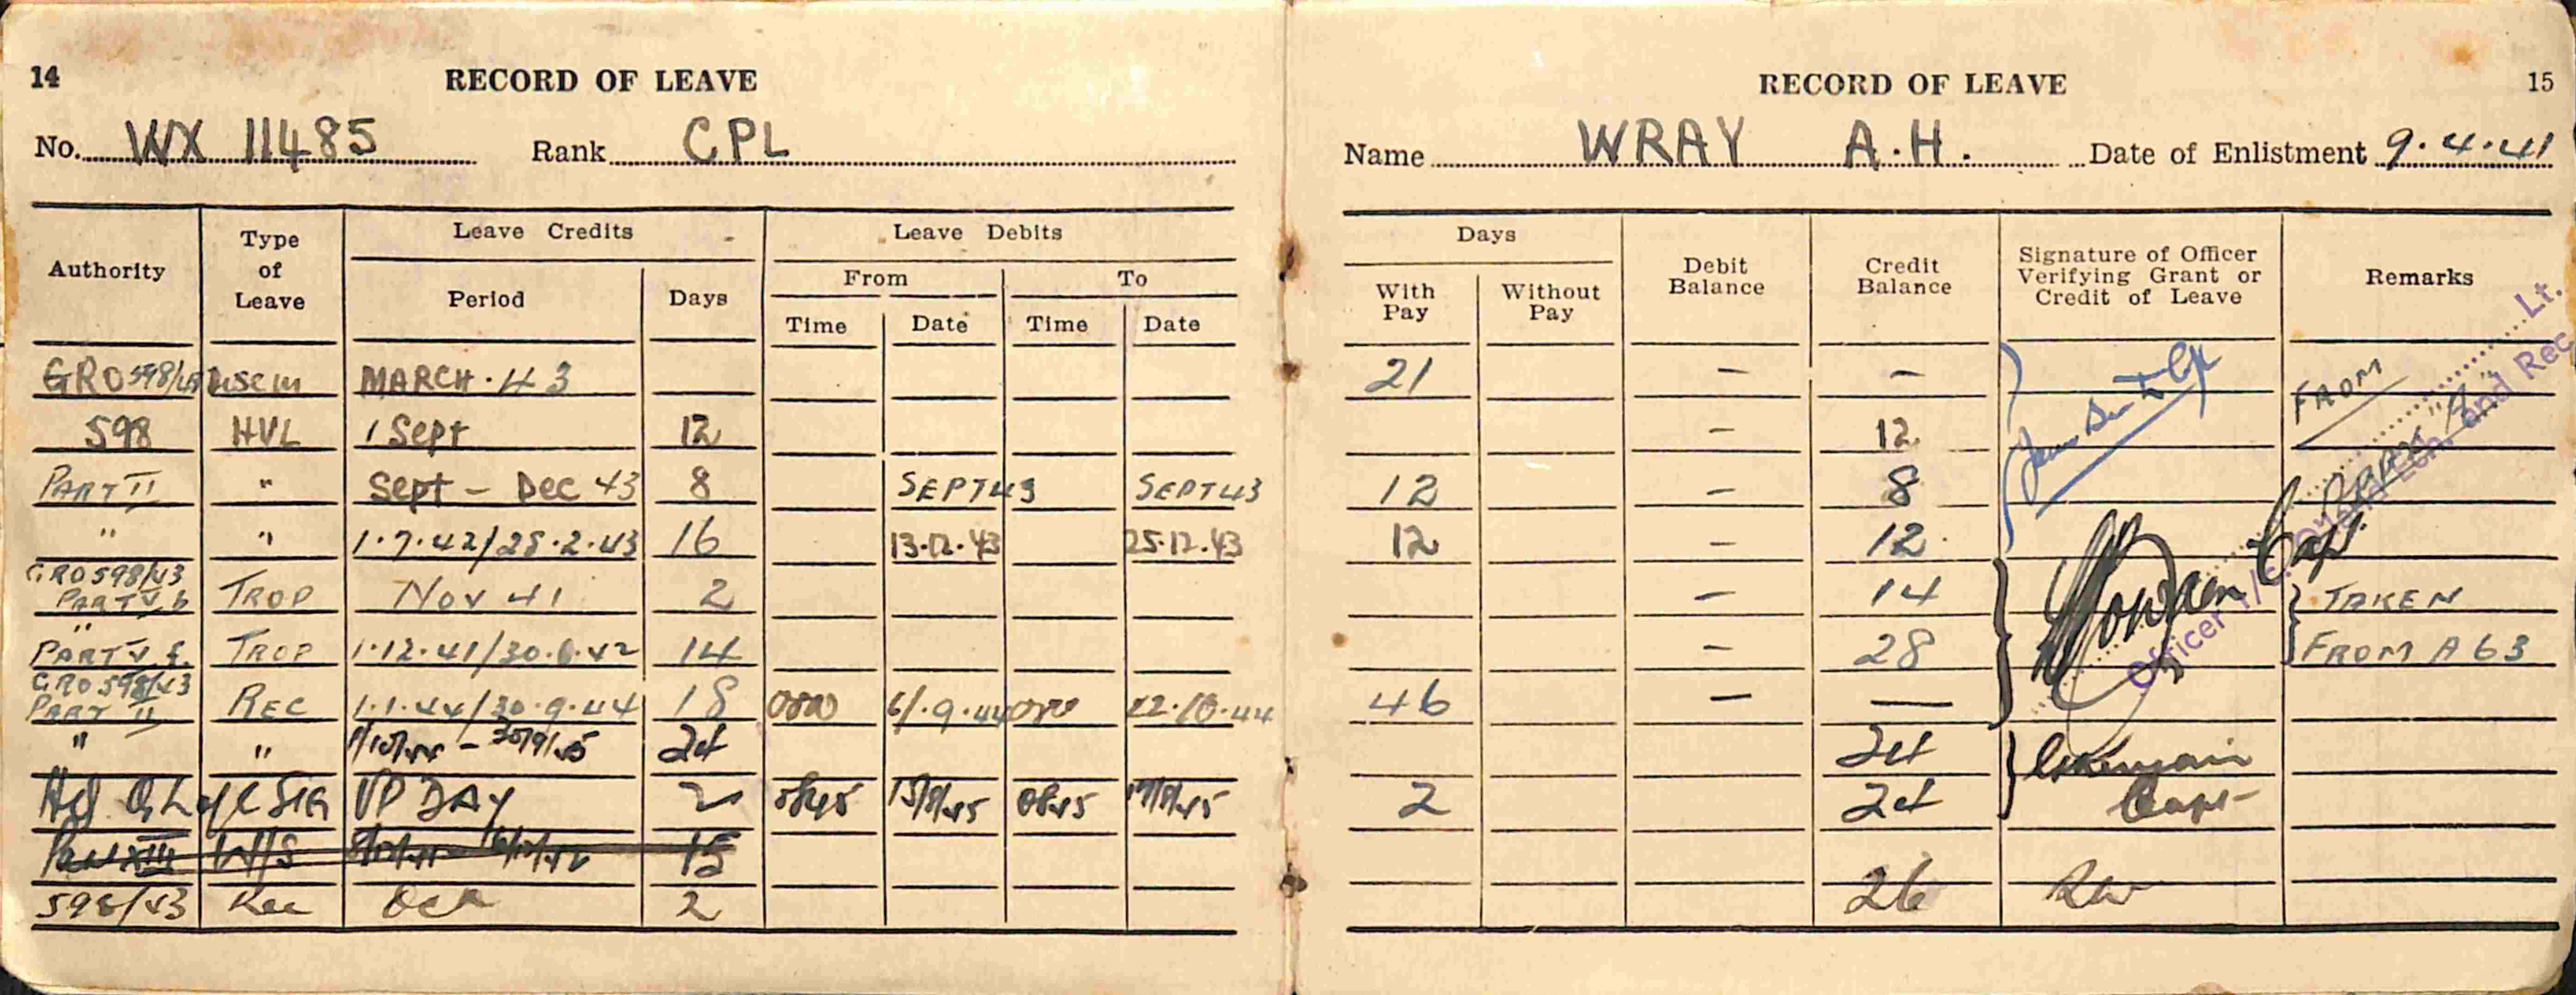 14
RECORD OF LEAVE
No. WX 11485 Rank CPL
Authority Type of Leave Leave Credits Leave Debits
Period Days From To
Time Date Time Date
GRO 598/43 MARCH. 43
598 HVL 1 Sept 12
PART II " Sept - Dec 43 8 SEPT 43 SEPT 43
" " 1.7.42/28.2.43 16 13.12.43 25.12.43
GRO 598/43
PART V b TROP Nov 41 2
"
PART V TROP 1.12.41/30.6.42 14
GRO 598/43
PART II REC 1.1.44/30.9.44 18 .9.44 22.10.44
" " 1/10/44 - 30/9/45 24
VP DAY 2 0845 15/8/45 0845 17/8/45
W/S 15
598/43 Rec Oct 2
RECORD OF LEAVE
15
Name WRAY A.H. Date of Enlistment 9.4.41
Days Debit Balance Credit Balance Signature of Officer Verifying Grant or Credit of Leave Remarks
With Pay Without Pay
21 — — FROM
— 12
12 — 8
12 — 12 Capt
— 14 TAKEN
— 28 FROM A 63
46 — —
24
2 24 Capt
26
Lt.
Officer and Rec